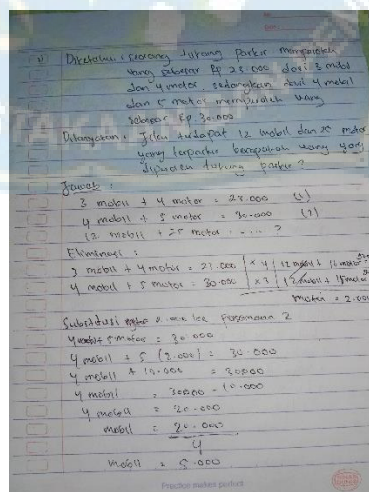 Diketahui : seorang tukang parkir memperoleh
uang sebesar Rp 23.000 dari 3 mobil
dan 4 motor, sedangkan dari 4 mobil
dan 5 motor memperoleh uang
sebesar Rp. 30.000
Ditanyakan : Jika terdapat 12 mobil dan 25 motor
yang terparkir berapakah uang yang
tukang parkir ?
Jawab :
3 mobil + 4 motor = 23.000 (1)
4 mobil + 5 motor = 30.000 (2)
12 mobil + 25 motor = .... ?
Eliminasi :
3 mobil + 4 motor = 23.000 | x 4 | 12 mobil + 16 motor
4 mobil + 5 motor = 30.000 | x 3 | 12 mobil + 15 motor
motor = 2.000
Substitusi ke Persamaan 2
4 mobil + 5 motor = 30.000
4 mobil + 5 (2.000) = 30.000
4 mobil + 10.000 = 30000
4 mobil = 30000 - 10.000
4 mobil = 20.000
mobil = 20.000
4
mobil = 5.000
Practice makes perfect